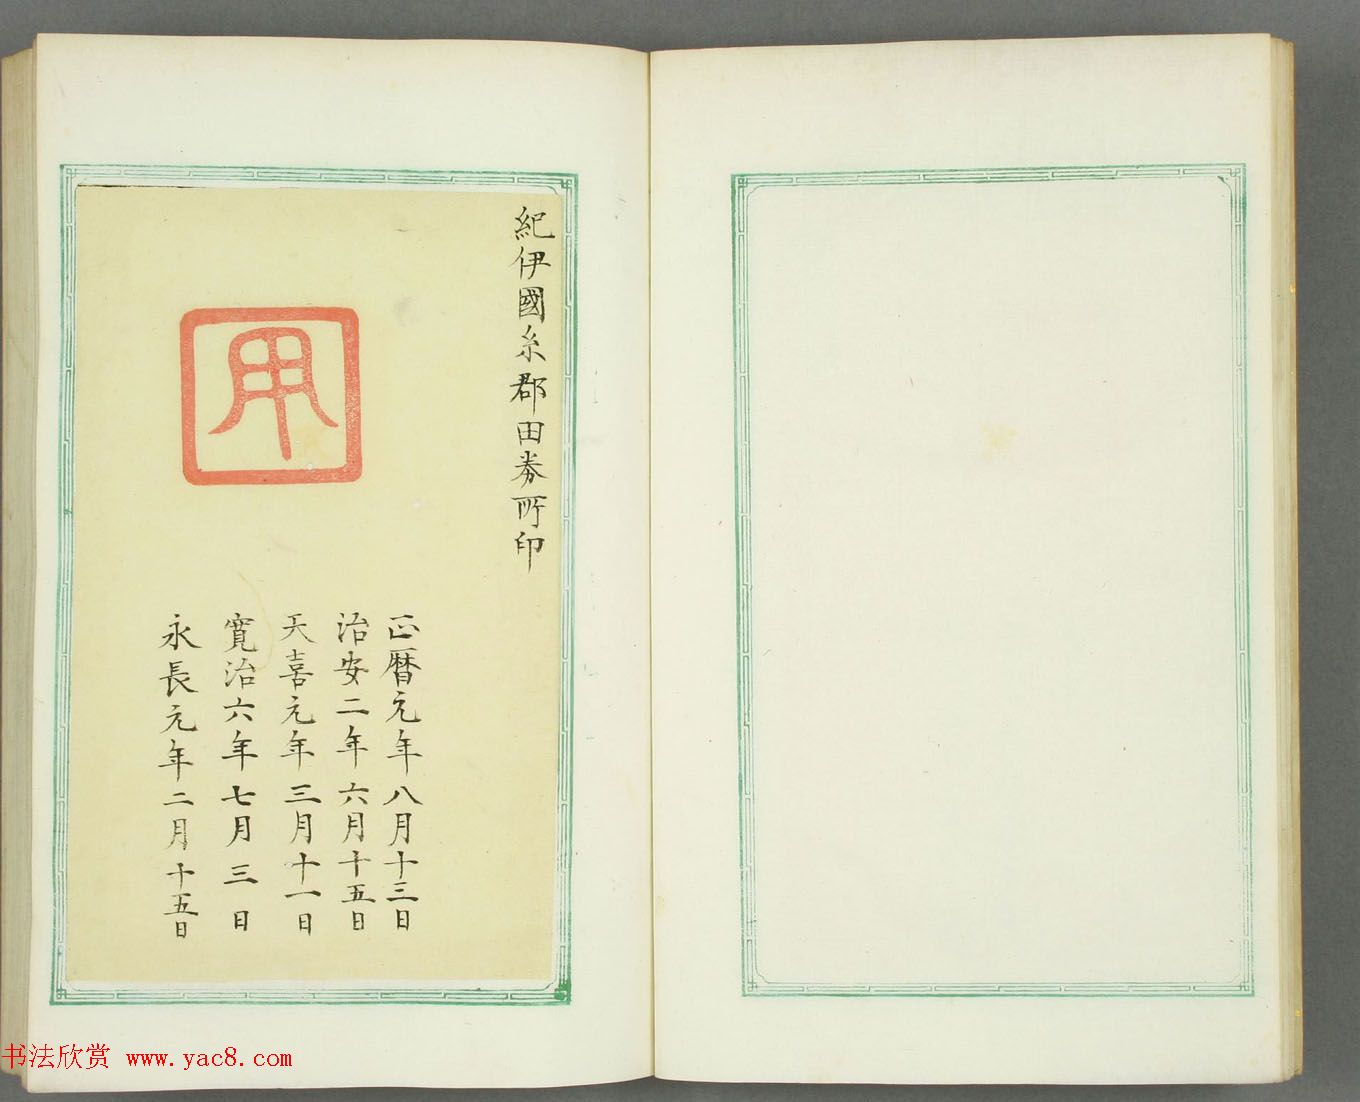 紀伊國糸郡田券所印
用
正暦元年八月十三日
治安二年六月十五日
天喜元年三月十一日
寛治六年七月三日
永長元年二月十五日
书法欣赏 www.yac8.com